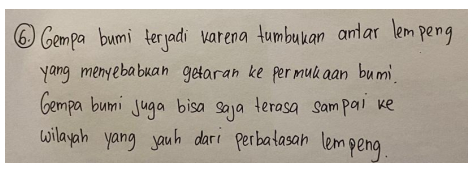 6. Gempa bumi terjadi karena tumbukan antar lempeng
yang menyebabkan getaran ke permukaan bumi.
Gempa bumi juga bisa saja terasa sampai ke
wilayah yang jauh dari perbatasan lempeng.